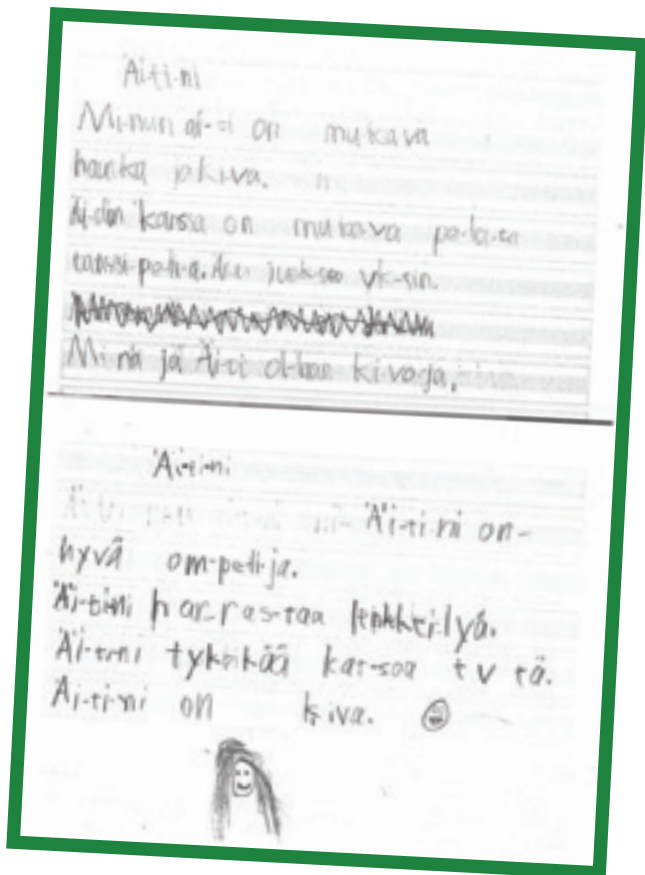 Äi-ti-ni
Mi-nun äi-ti on mu-ka-va
haus-ka ja ki-va.
Äi-din kans-sa on mu-ka-va pe-la-ta
tans-si-pe-li-ä. yk-sin.
Mi-nä jä Äi-ti ol-laan ki-vo-ja.
Äi-ti-ni
Äi-ti-ni on-
hyvä om-pe-li-ja.
Äi-ti-ni har-ras-taa lenk-kei-lyä.
Äi-ti-ni tyk-kää kat-soa tv tä.
Äi-ti-ni on kiva.